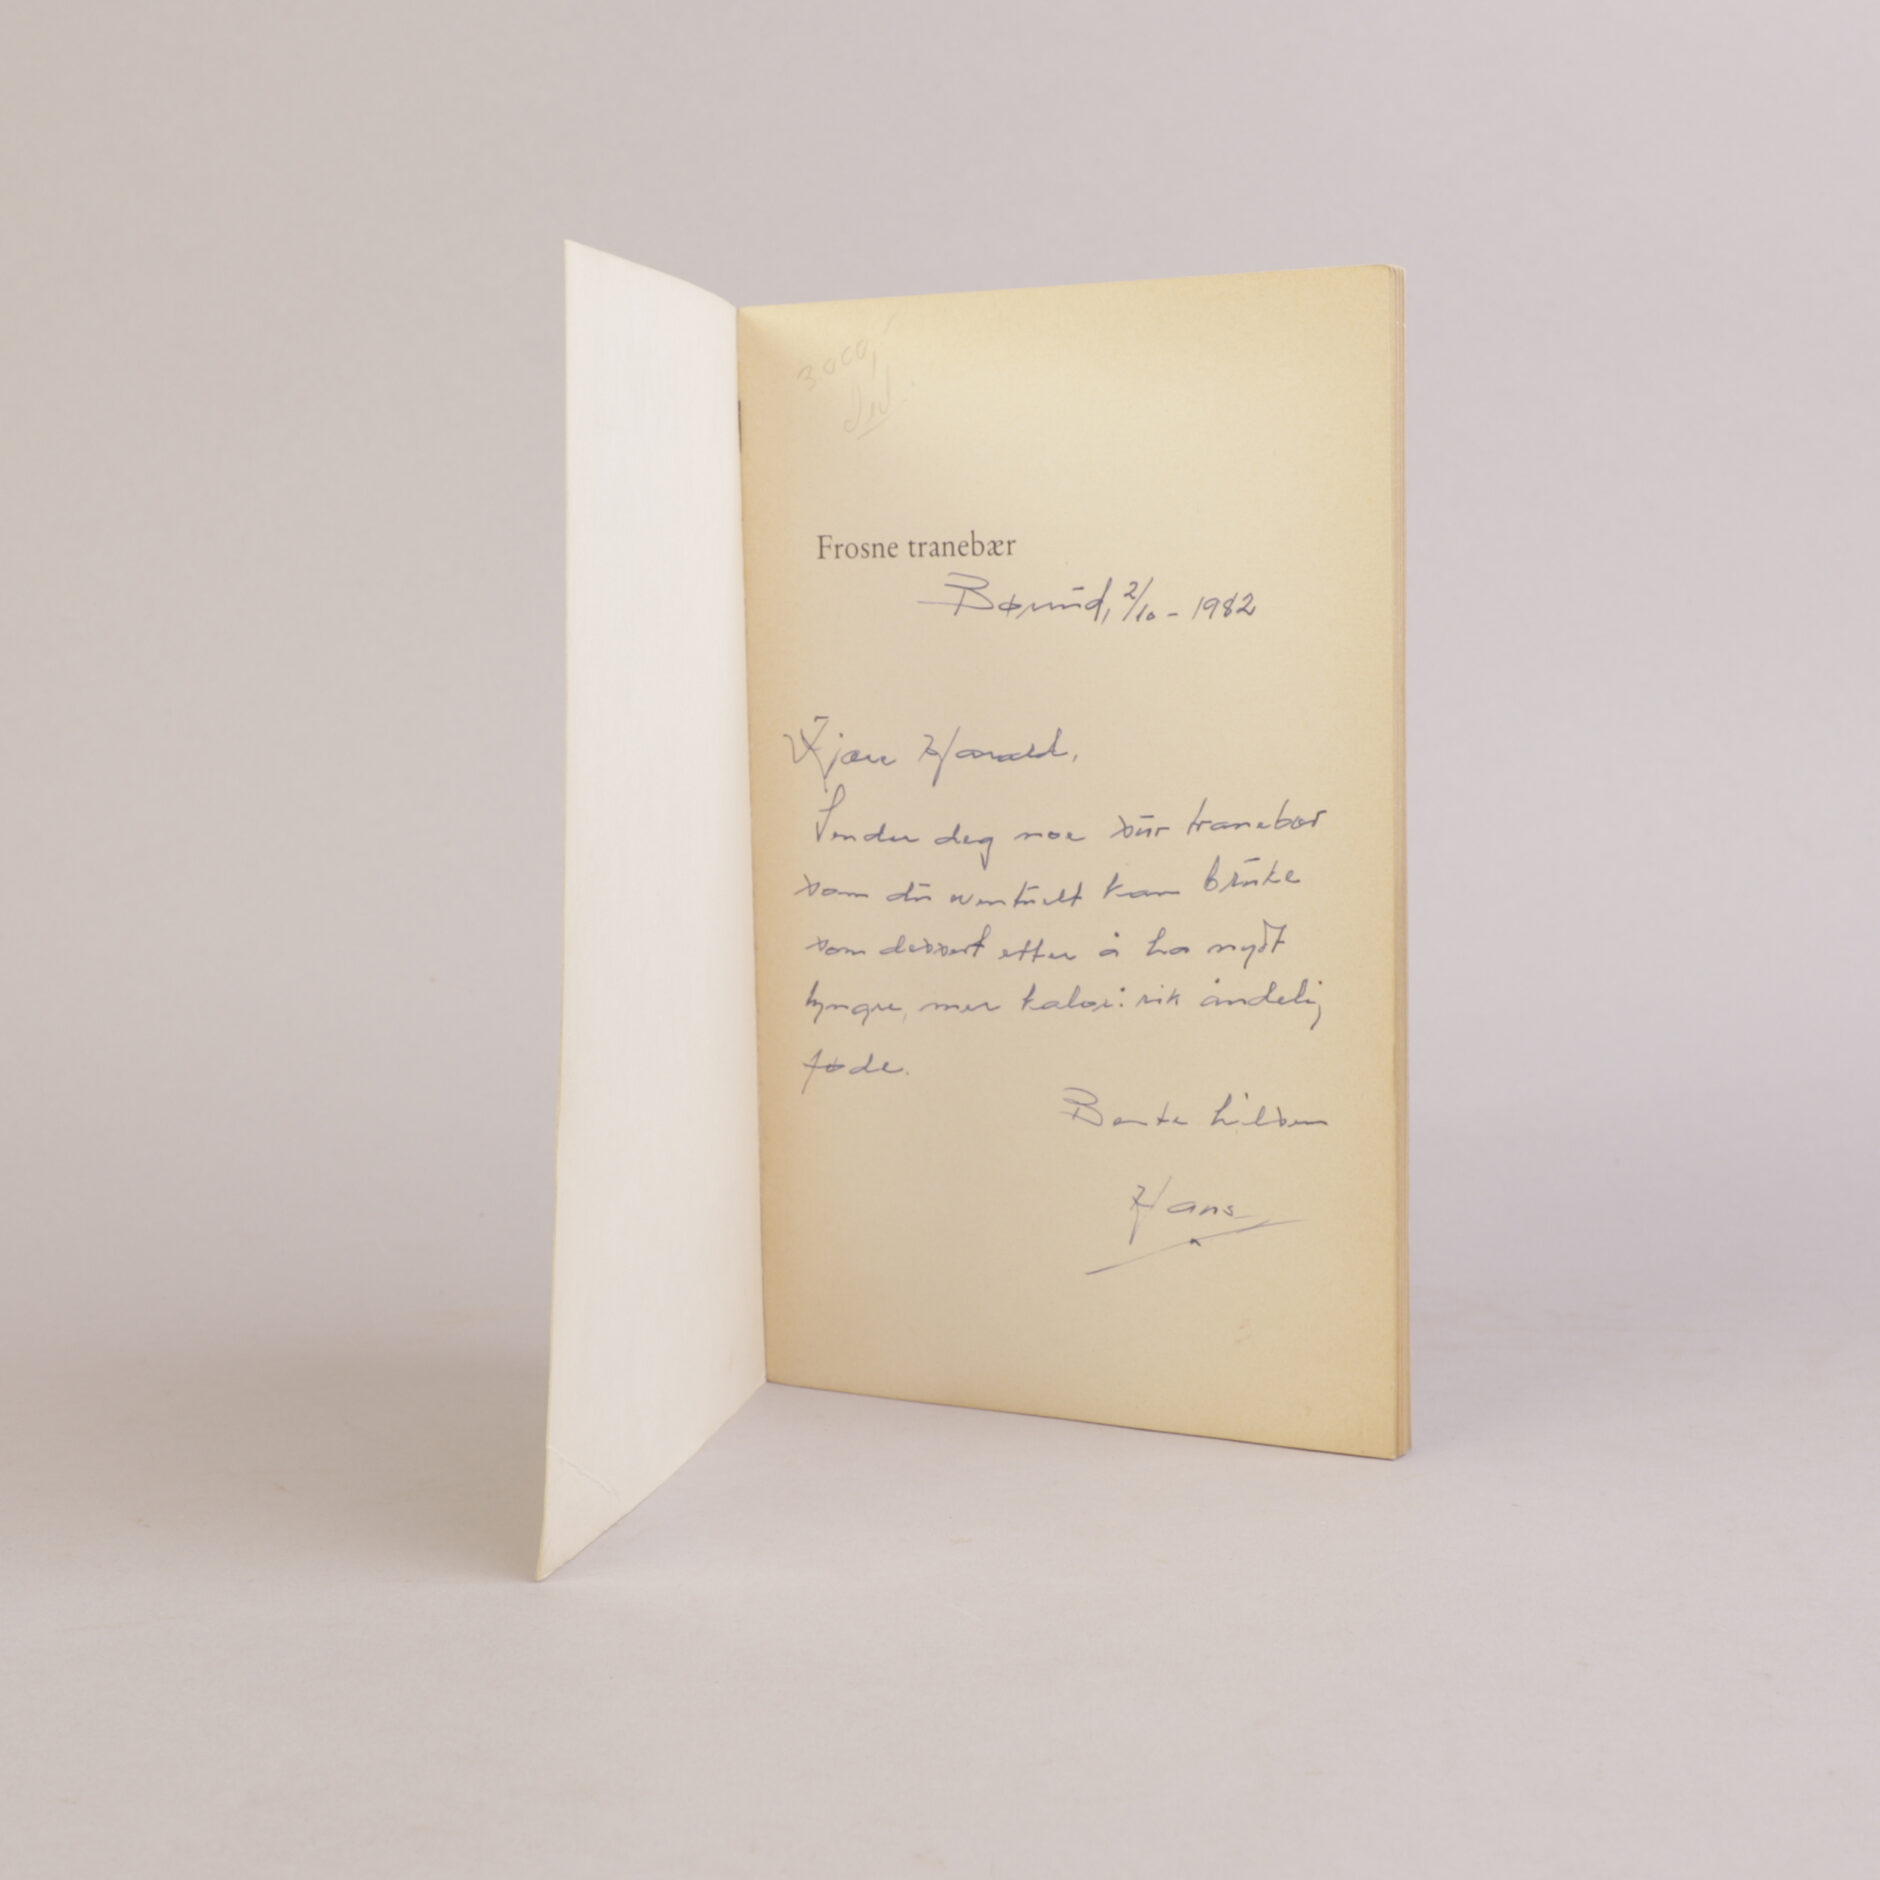 3000,-
ded.
Frosne tranebær
Børrud, 2/10 - 1982
Kjære Harald,
Sender deg noe sur tranebær
som du eventuelt kan bruke
som dessert etter å ha nydt
tyngre, mer kalori rik åndelig
føde.
Beste hilsen
Hans